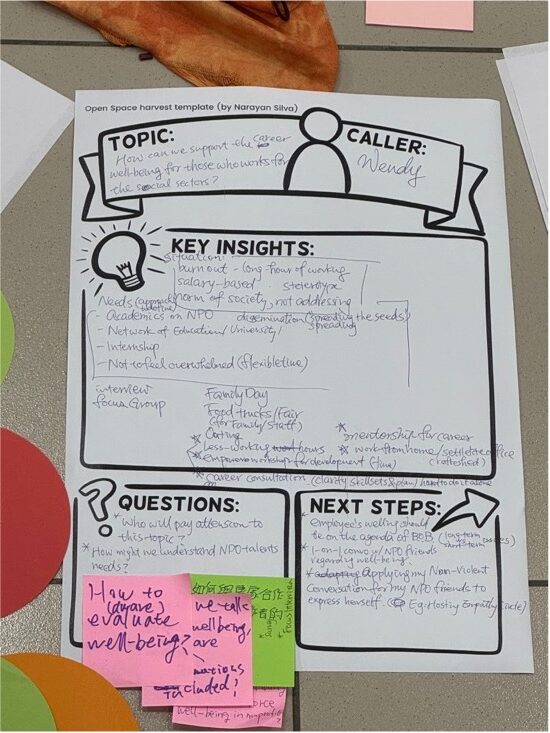 Open Space harvest template (by Narayan Silva)
TOPIC:
How can we support the career
well-being for those who works for
the social sectors?
CALLER:
Wendy
KEY INSIGHTS:
situation:
burnout - long-hour of working
salary-based
norm of society, not addressing
Needs
- Academics on NPO
dissemination (spreading the seeds)
spreading
- Network of Education/University/
- Internship
- Not to feel overwhelmed (flexible time)
interview
focus Group
Family Day
Food trucks/Fair
(for Family/Staff)
* Outing
* less-working hours
* workshop for development
* career consultation (clarity skillsets & plan)
* mentorship for career
* work from home/
QUESTIONS:
* Who will pay attension to
this topic?
* How might we understand NPO-talents
needs?
NEXT STEPS:
* Employee's welling should
be on the agenda of
* 1-on-1 convo w/ NPO friends
regarding well-being.
* Applying my Non-Violent
Conversation for my NPO friends to
express herself.
Eg. Hosting Empathy Circle)
How to
(aware)
evaluate
well-being?
we talk
wellbeing,
are
included?
well-being in